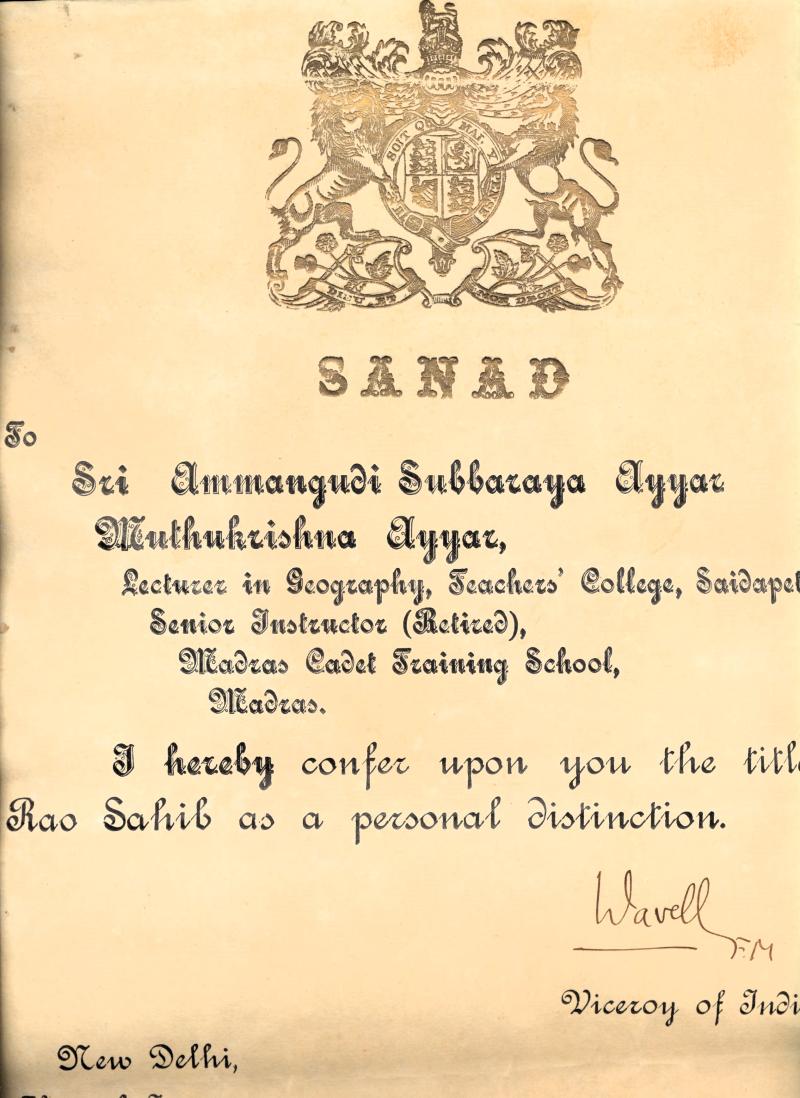 SOIT Q MAL Y PENSE
DIEU ET MON DROIT
SANAD
To
Sri Ammangudi Subbaraya Ayyar
Muthukrishna Ayyar,
Lecturer in Geography, Teachers' College, Saidapet
Senior Instructor (Retired),
Madras Cadet Training School,
Madras.
I hereby confer upon you the title
Rao Sahib as a personal distinction.
Wavell
F.M
Viceroy of Indi
New Delhi,